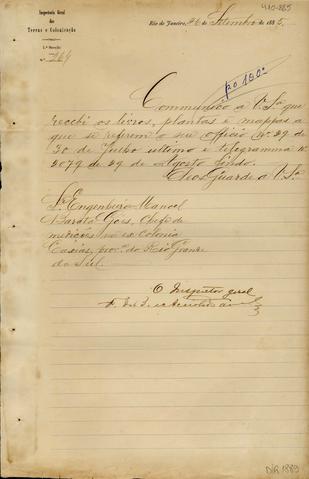 410-885
Inspectoria Geral
das
Terras e Colonização
1ª Secção
Nº 264
Rio de Janeiro, 26 de Setembro de 1885.
Communico a V.Sª que
recebi os livros, plantas e mappas a
que se referem o seu officio Nº 29 de
30 de Julho ultimo e telegramma nº
2079 de 29 de Agosto findo.
Deos Guarde a V.Sª
Sr. Engenheiro Manoel
Barata Góes, Chefe de
medições na ex Colonia
Caxias, procª do Rio Grande
do Sul.
O Inspector geral
DIR 1889